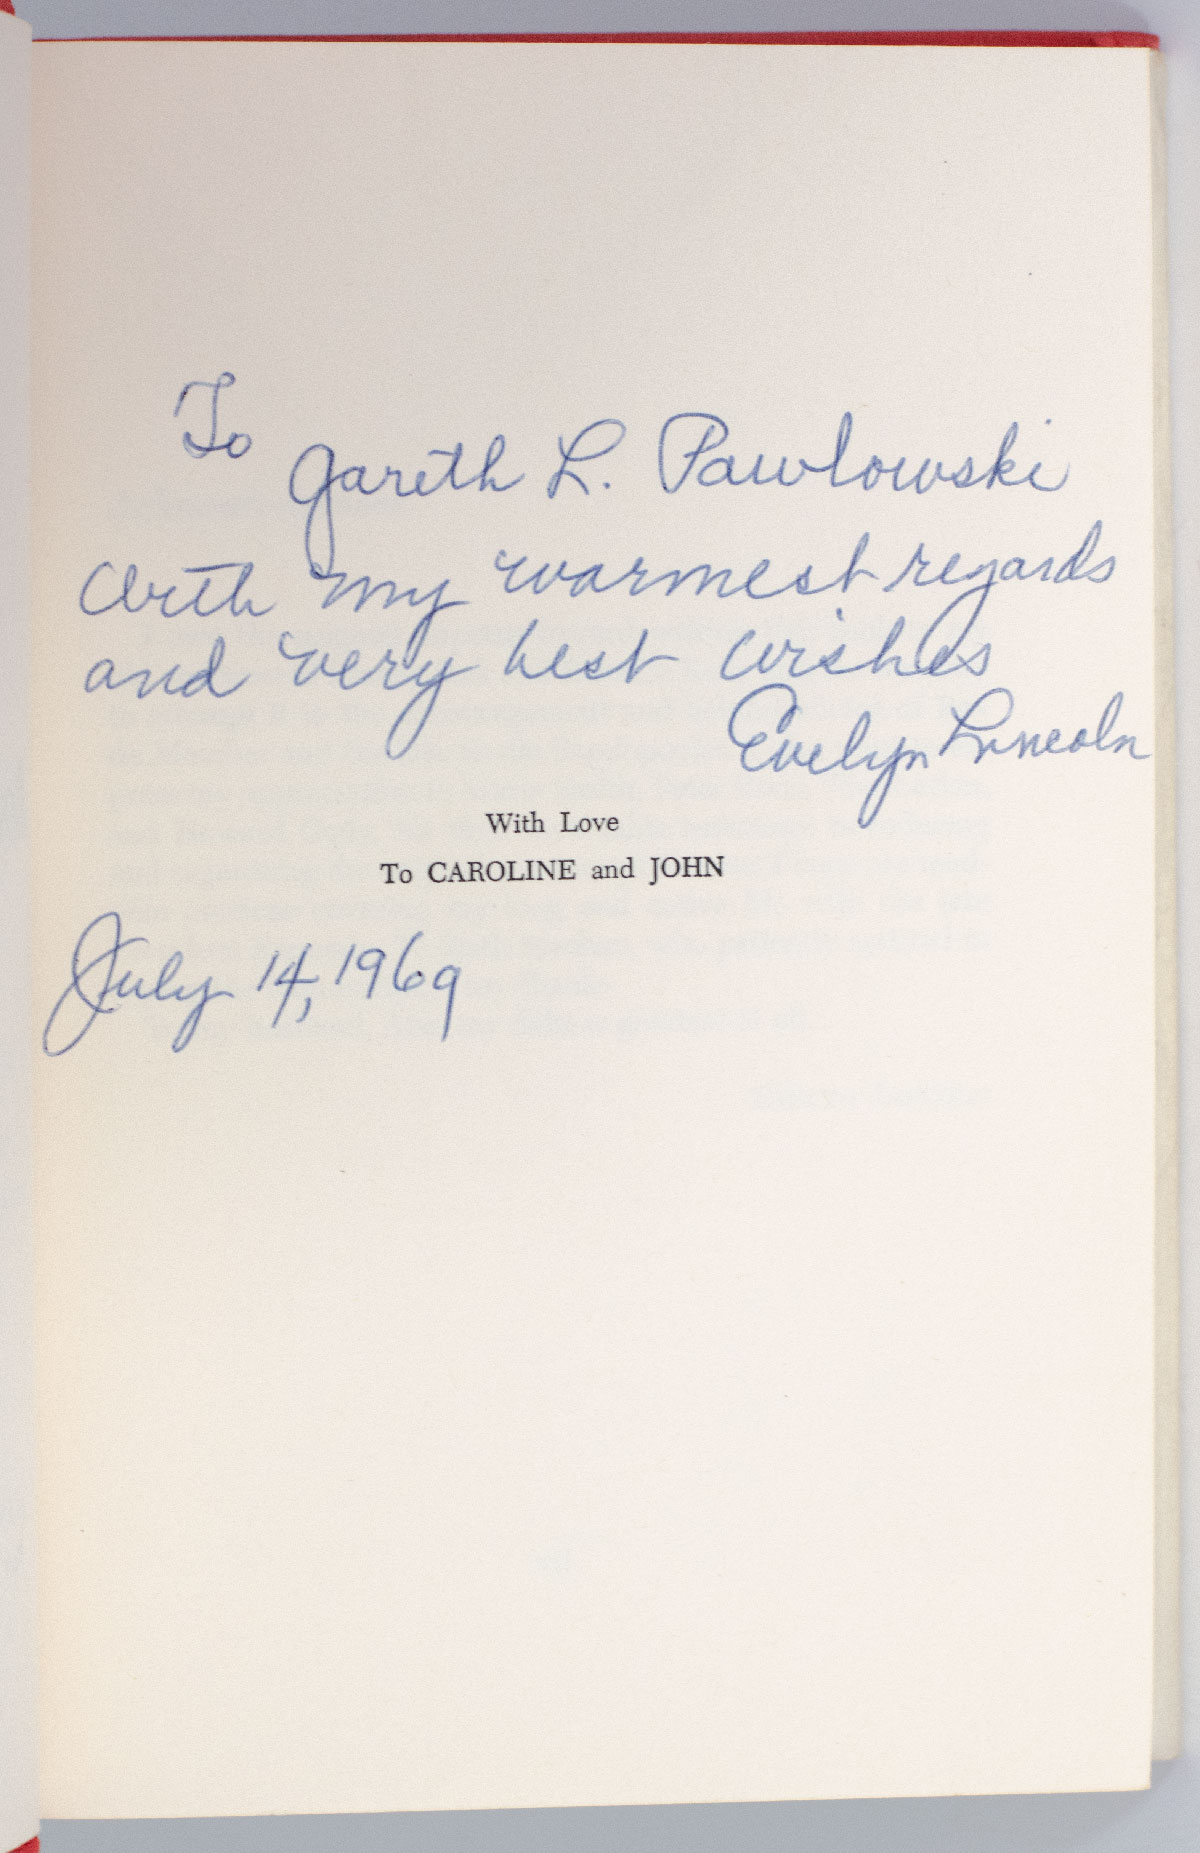 To
Gareth L. Pawlowski
With my warmest regards
and very best wishes
Evelyn Lincoln
With Love
To CAROLINE and JOHN
July 14, 1969